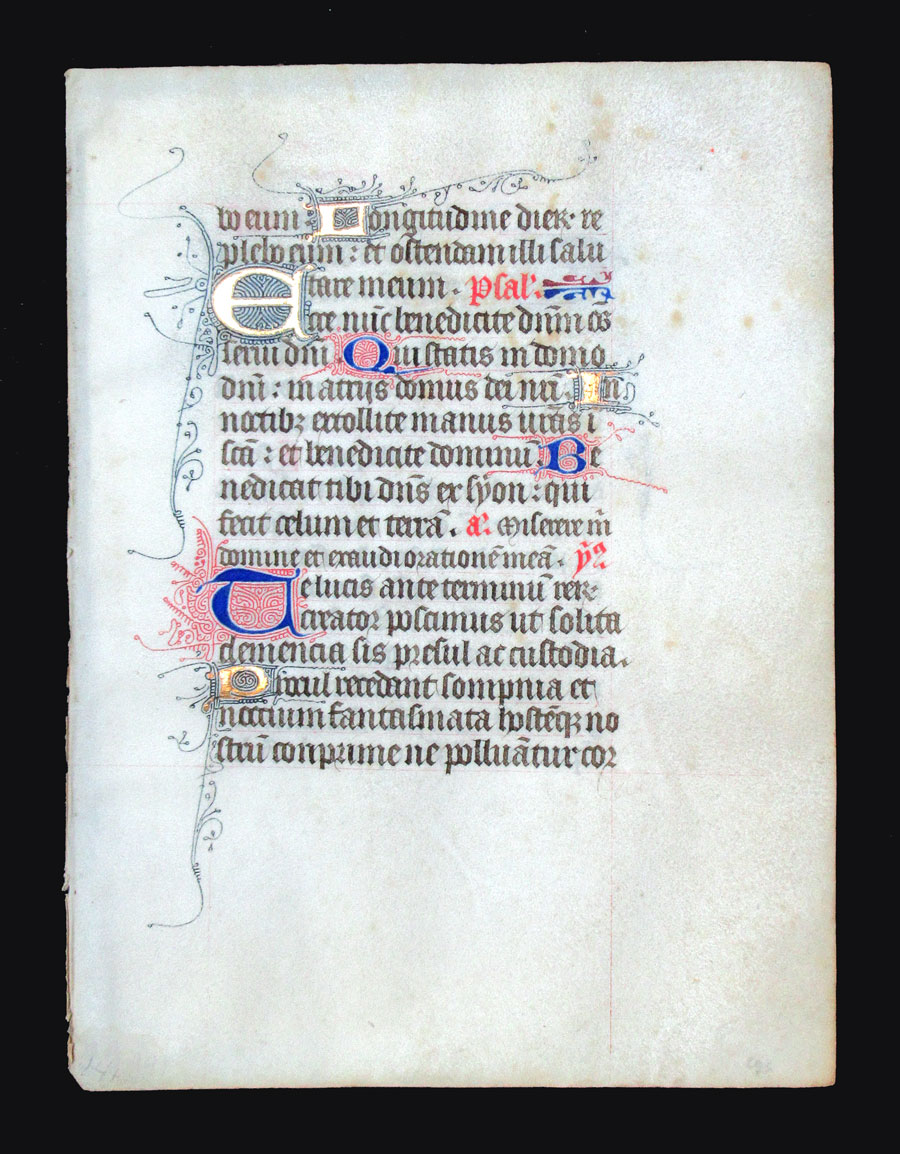 bo eum. Longitudine dieꝝ re
plebo eum: et ostendam illi salu
tare meum. Psalꝰ.
Ecce nūc benedicite dnm̄ oēs
serui dnī. Qui statis in domo
dnī: in atrijs domus dei nrī. In
noctibꝫ extollite manus urās ī
scā: et benedicite dominū. Be
nedicat tibi dn̄s ex syon: qui
fecit celum et terrā. aͣ. Miserere m̄
domine et exaudi orationē meā. ymͬ.
Te lucis ante terminū reꝝ
creator poscimus ut solita
clemencia sis presul ac custodia.
Procul recedant sompnia et
noctium fantasmata hostēqꝫ no
strū conprime ne polluātur cor